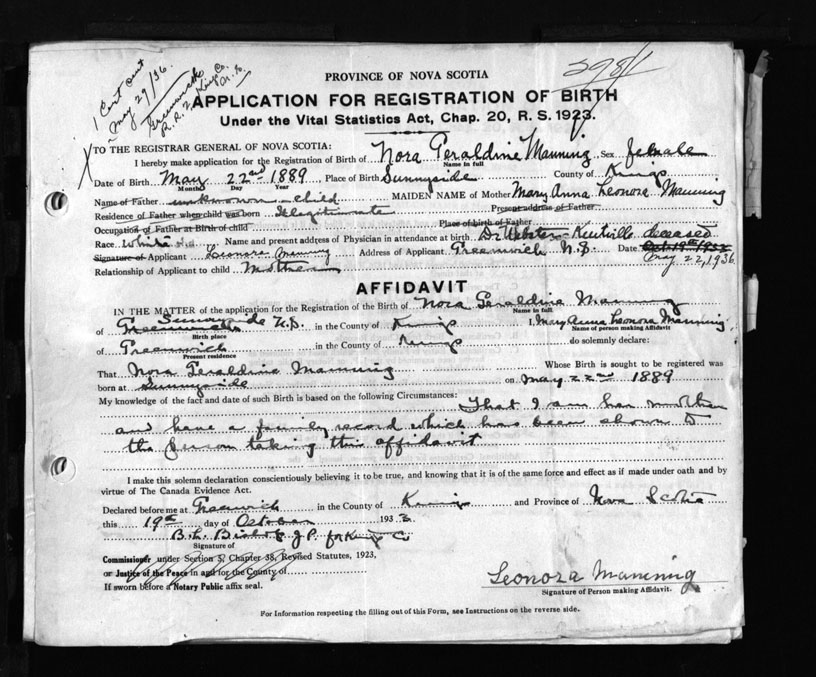 1 Cert out
May 29/36.
Greenwich
R.R.2, Kings Co.
N.S.
3981
PROVINCE OF NOVA SCOTIA
APPLICATION FOR REGISTRATION OF BIRTH
Under the Vital Statistics Act, Chap. 20, R. S. 1923.
X TO THE REGISTRAR GENERAL OF NOVA SCOTIA:
I hereby make application for the Registration of Birth of Nora Geraldine Manning Sex female
Name in full
Date of Birth May 22nd 1889 Place of Birth Sunnyside County of Kings
Month Day Year
Name of Father unknown child MAIDEN NAME of Mother Mary Anna Leonora Manning
Residence of Father when child was born Illegitimate Present address of Father
Occupation of Father at Birth of child Place of birth of Father
Race White Name and present address of Physician in attendance at birth Dr Webster - Kentville deceased
Signature of Applicant Leonora Manning Address of Applicant Greenwich N.S. Date Oct 19th 1933
May 22, 1936.
Relationship of Applicant to child Mother
AFFIDAVIT
IN THE MATTER of the application for the Registration of the Birth of Nora Geraldine Manning
Name in full
Sunnyside
of Greenwich N.S. in the County of Kings I, Mary Anna Leonora Manning
Birth place Name of person making Affidavit
of Greenwich in the County of Kings do solemnly declare:
Present residence
That Nora Geraldine Manning Whose Birth is sought to be registered was
born at Sunnyside on May 22nd 1889
My knowledge of the fact and date of such Birth is based on the following Circumstances: That I am her mother
and have a family record which has been shown to
the person taking this affidavit
I make this solemn declaration conscientiously believing it to be true, and knowing that it is of the same force and effect as if made under oath and by
virtue of The Canada Evidence Act.
Declared before me at Greenwich in the County of Kings and Province of Nova Scotia
this 19th day of October 1933
B.L. Bishop J P for Kings C
Signature of
Commissioner under Section 5, Chapter 38, Revised Statutes, 1923,
or Justice of the Peace in and for the County of
If sworn before a Notary Public affix seal.
Leonora Manning
Signature of Person making Affidavit.
For Information respecting the filling out of this Form, see Instructions on the reverse side.